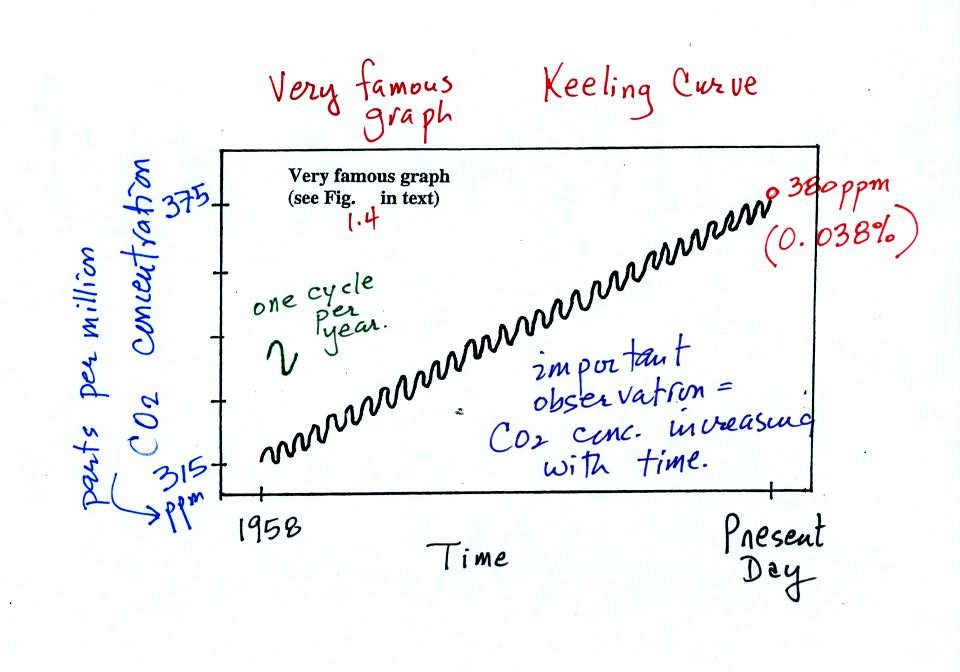 Very famous
graph
Keeling Curve
Very famous graph
(see Fig. in text)
1.4
375
380 ppm
(0.038%)
parts per million
CO2 concentration
one cycle
per
year.
important
observation =
CO2 conc. increasing
with time.
315
ppm
1958
Time
Present
Day